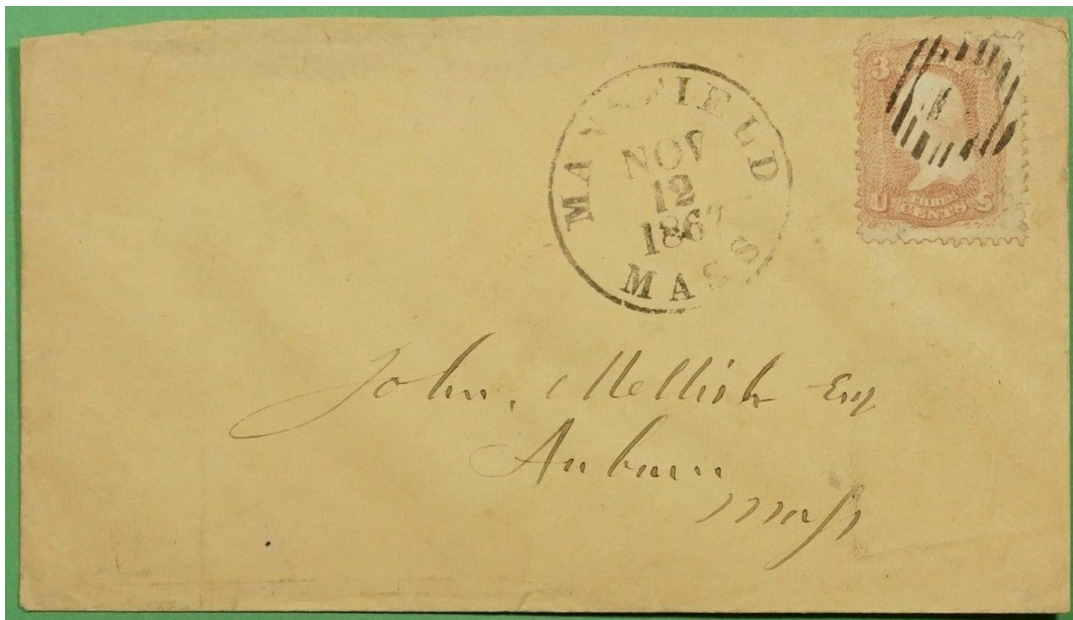 MANSFIELD
NOV
12
1867
MASS
3
U S
CENTS
John. Mellish Esq
Auburn
Mass